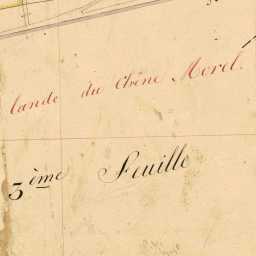 lande du Chêne Morel.
3ème Feuille